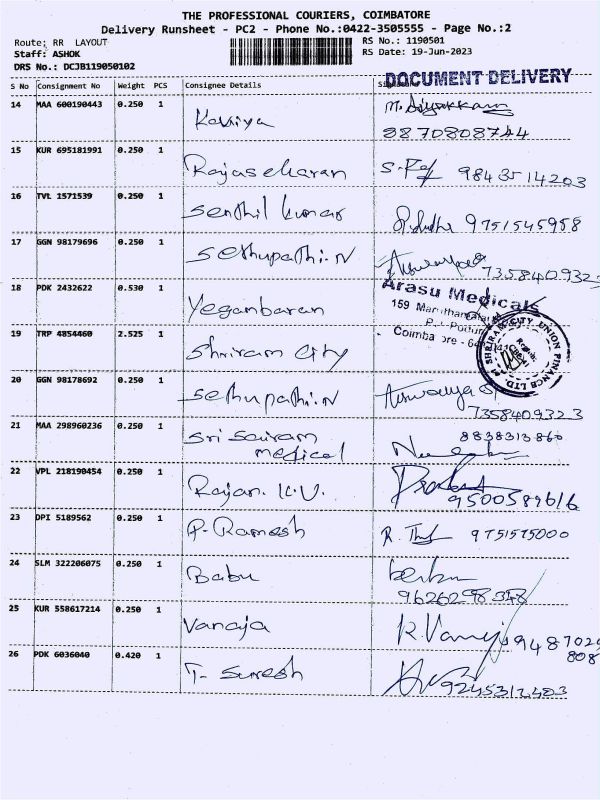 THE PROFESSIONAL COURIERS, COIMBATORE
Delivery Runsheet - PC2 - Phone No.:0422-3505555 - Page No.:2
Route: RR LAYOUT
RS No.: 1190501
Staff: ASHOK
RS Date: 19-Jun-2023
DRS No.: DCJB119050102
DOCUMENT DELIVERY
S No Consignment No Weight PCS Consignee Details
14 MAA 600190443 0.250 1 Kaviya
8870808744
15 KUR 695181991 0.250 1 Rajasekaran
9843514203
16 TVL 1571539 0.250 1 Senthil kumar
9751545958
17 GGN 98179696 0.250 1 Sethupathi.N
7358409323
18 PDK 2432622 0.530 1 Yeganbaran
Arasu Medicals
159
Coimbatore
19 TRP 4854460 2.525 1 Shriram City
SHRIRAM CITY UNION FINANCE LTD.
20 GGN 98178692 0.250 1 Sethupathi.N Aiswarya
7358409323
21 MAA 298960236 0.250 1 Sri Sairam
medical
8838313860
22 VPL 218190454 0.250 1 Rajan. K.V.
9500589616
23 DPI 5189562 0.250 1 P. Ramesh
9751575000
24 SLM 322206075 0.250 1 Babu
9626298348
25 KUR 558617214 0.250 1 Vanaja
9487029
808
26 PDK 6036040 0.420 1 T. Suresh
9245312403